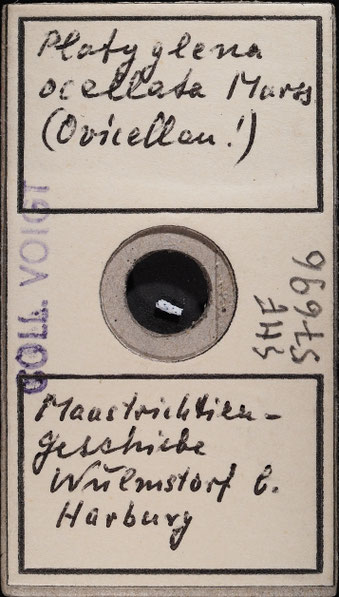 Platyglena
ocellata Marss
(Ovicellen!)
COLL. VOIGT
SMF
57696
Maastrichtien-
geschiebe
Wulmstorf b.
Harburg